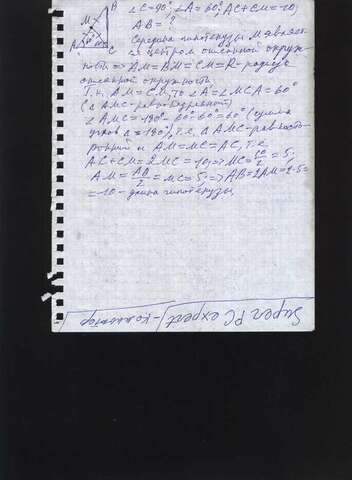 B
M
A
60°
C
∠C=90°; ∠A=60°; AC+CM=10;
AB=?
Середина гипотенузы M являет-
ся центром описанной окруж-
ности => AM=BM=CM=R-радиус
описанной окружности.
Т.к. AM=CM, то ∠A=∠MCA=60°
(△AMC-равнобедренный)
∠AMC=180°-60°-60°=60° (сумма
углов △=180°), т.е. △AMC-равносто-
ронний и AM=MC=AC, т.е.
AC+CM=2MC=10 => MC=10/2=5;
AM=AB/2=MC=5; => AB=2AM=2·5=
=10-длина гипотенузы.
Super PC expert